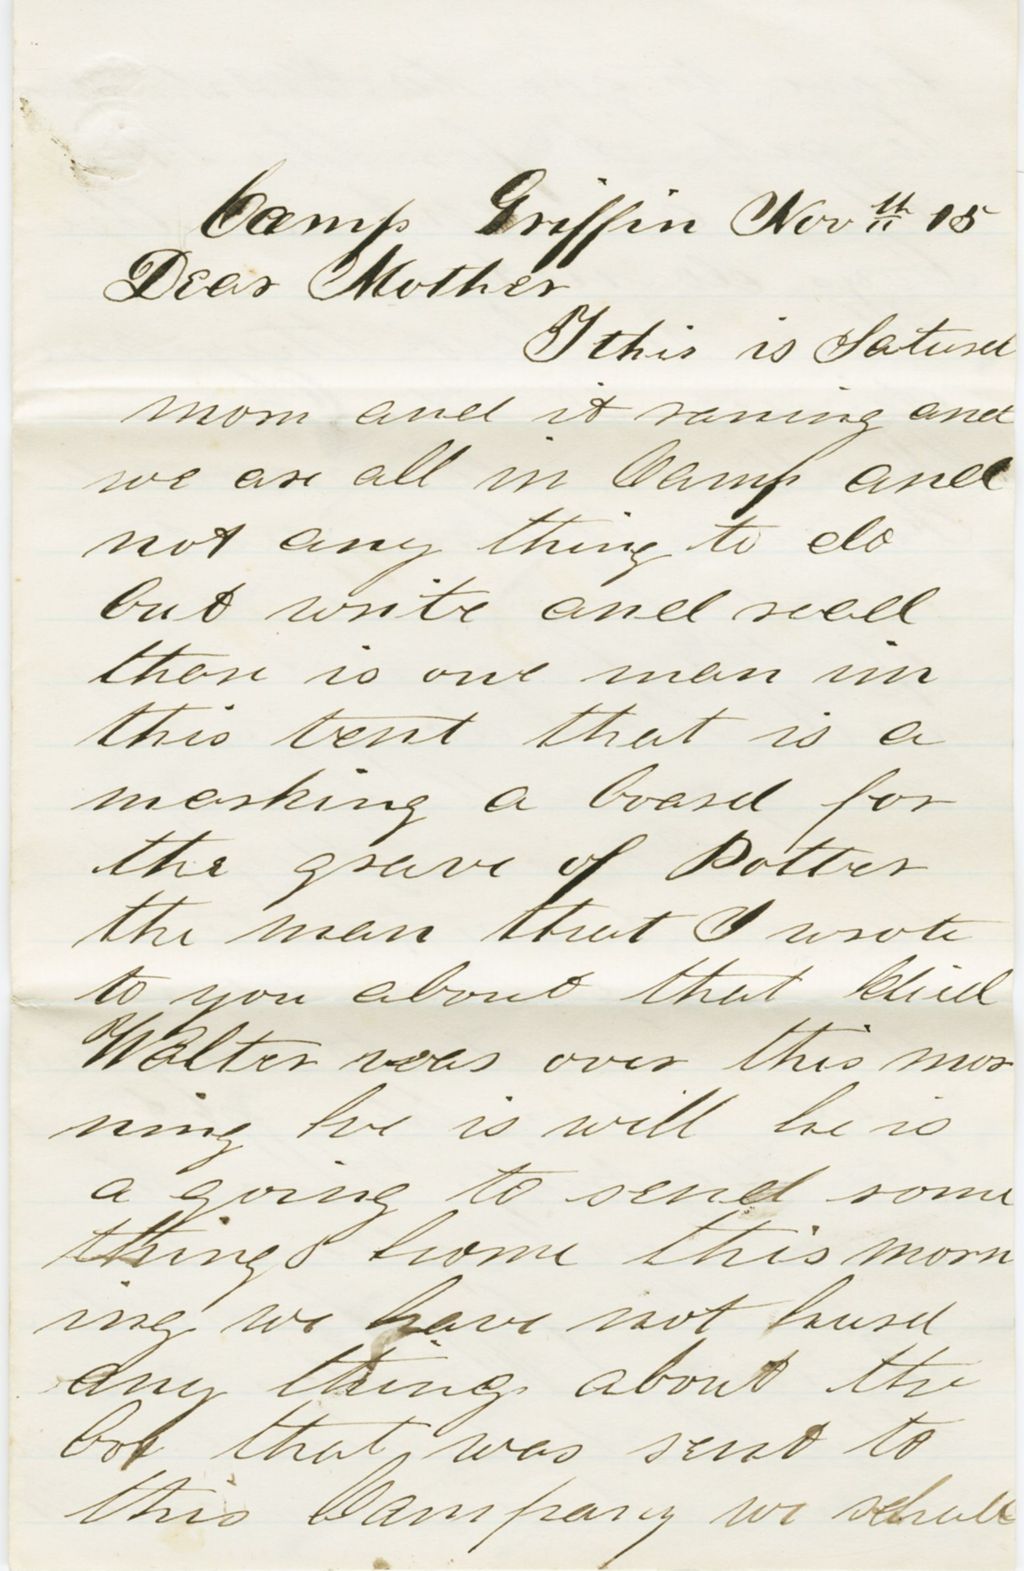 Camp Griffin Nov th 15
Dear Mother
I this is Saturd
morn and it raning and
we are all in Camp and
not any thing to do
but write and read
thare is one man in
this tent that is a
marking a board for
the grave of Potter
the man that I wrote
to you about that died
Walter was over this mor
ning he is will he is
a going to send some
things home this morn
ing we have not hurd
any thing about the
box that was sent to
this Company we